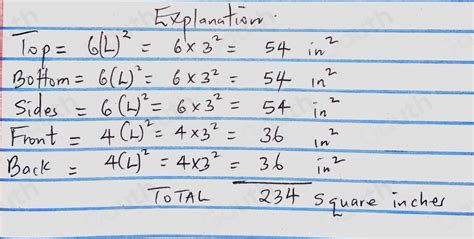 Explanation.
Top = 6(L)² = 6×3² = 54 in²
Bottom = 6(L)² = 6×3² = 54 in²
Sides = 6(L)² = 6×3² = 54 in²
Front = 4(L)² = 4×3² = 36 in²
Back = 4(L)² = 4×3² = 36 in²
TOTAL 234 square inches